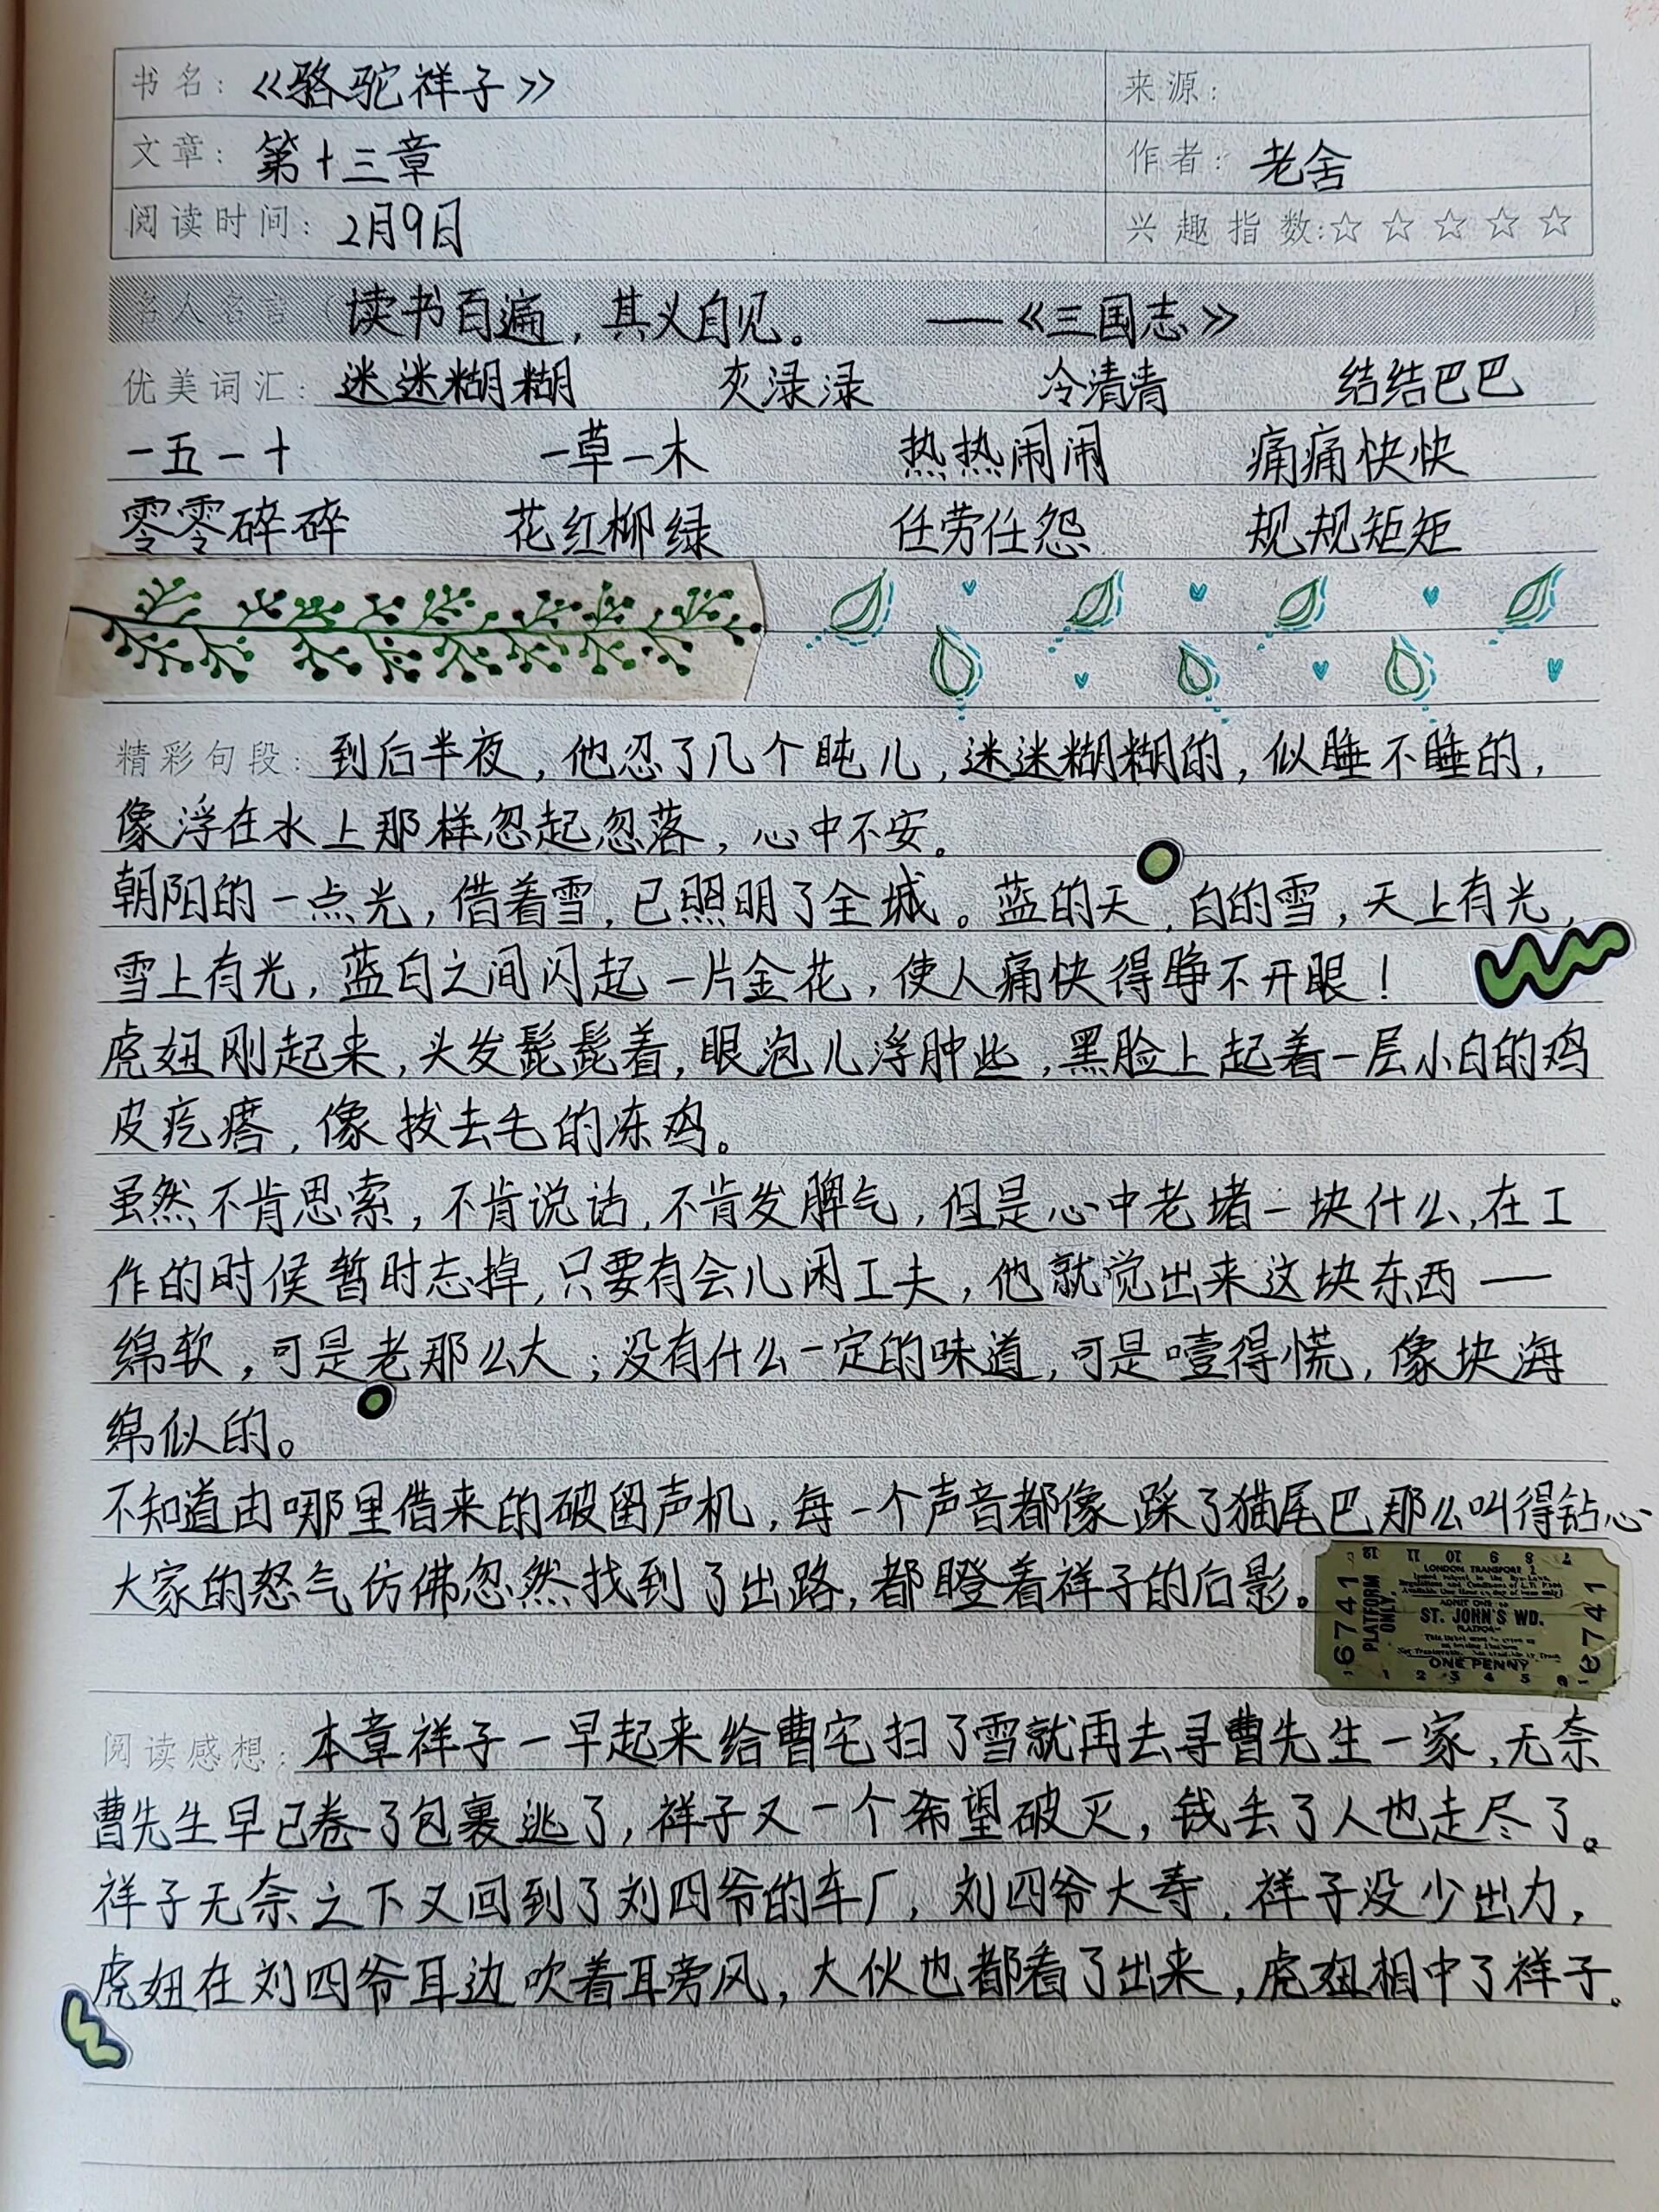 书名：《骆驼祥子》 来源：
文章：第十三章 作者：老舍
阅读时间：2月9日 兴趣指数:☆☆☆☆☆
名人名言（读书百遍，其义自见。 ——《三国志》 ）
优美词汇：迷迷糊糊 灰渌渌 冷清清 结结巴巴
一五一十 一草一木 热热闹闹 痛痛快快
零零碎碎 花红柳绿 任劳任怨 规规矩矩
精彩句段：到后半夜，他忍了几个盹儿，迷迷糊糊的，似睡不睡的，
像浮在水上那样忽起忽落，心中不安。
朝阳的一点光，借着雪，已照明了全城。蓝的天，白的雪，天上有光，
雪上有光，蓝白之间闪起一片金花，使人痛快得睁不开眼！
虎妞刚起来，头发髭髭着，眼泡儿浮肿些，黑脸上起着一层小白的鸡
皮疙瘩，像拔去毛的冻鸡。
虽然不肯思索，不肯说话，不肯发脾气，但是心中老堵一块什么，在工
作的时候暂时忘掉，只要有会儿闲工夫，他就觉出来这块东西——
绵软，可是老那么大；没有什么一定的味道，可是噎得慌，像块海
绵似的。
不知道由哪里借来的破留声机，每一个声音都像踩了猫尾巴那么叫得钻心
大家的怒气仿佛忽然找到了出路，都瞪着祥子的后影。
12 11 10 9 8 7
LONDON TRANSPORT
6741
PLATFORM ONLY.
ADMIT ONE to
ST. JOHN'S WD.
PLATFORM
ONE PENNY
1 2 3 4 5 6
6741
阅读感想：本章祥子一早起来给曹宅扫了雪就再去寻曹先生一家，无奈
曹先生早已卷了包裹逃了，祥子又一个希望破灭，钱丢了人也走尽了。
祥子无奈之下又回到了刘四爷的车厂，刘四爷大寿，祥子没少出力，
虎妞在刘四爷耳边吹着耳旁风，大伙也都看了出来，虎妞相中了祥子。